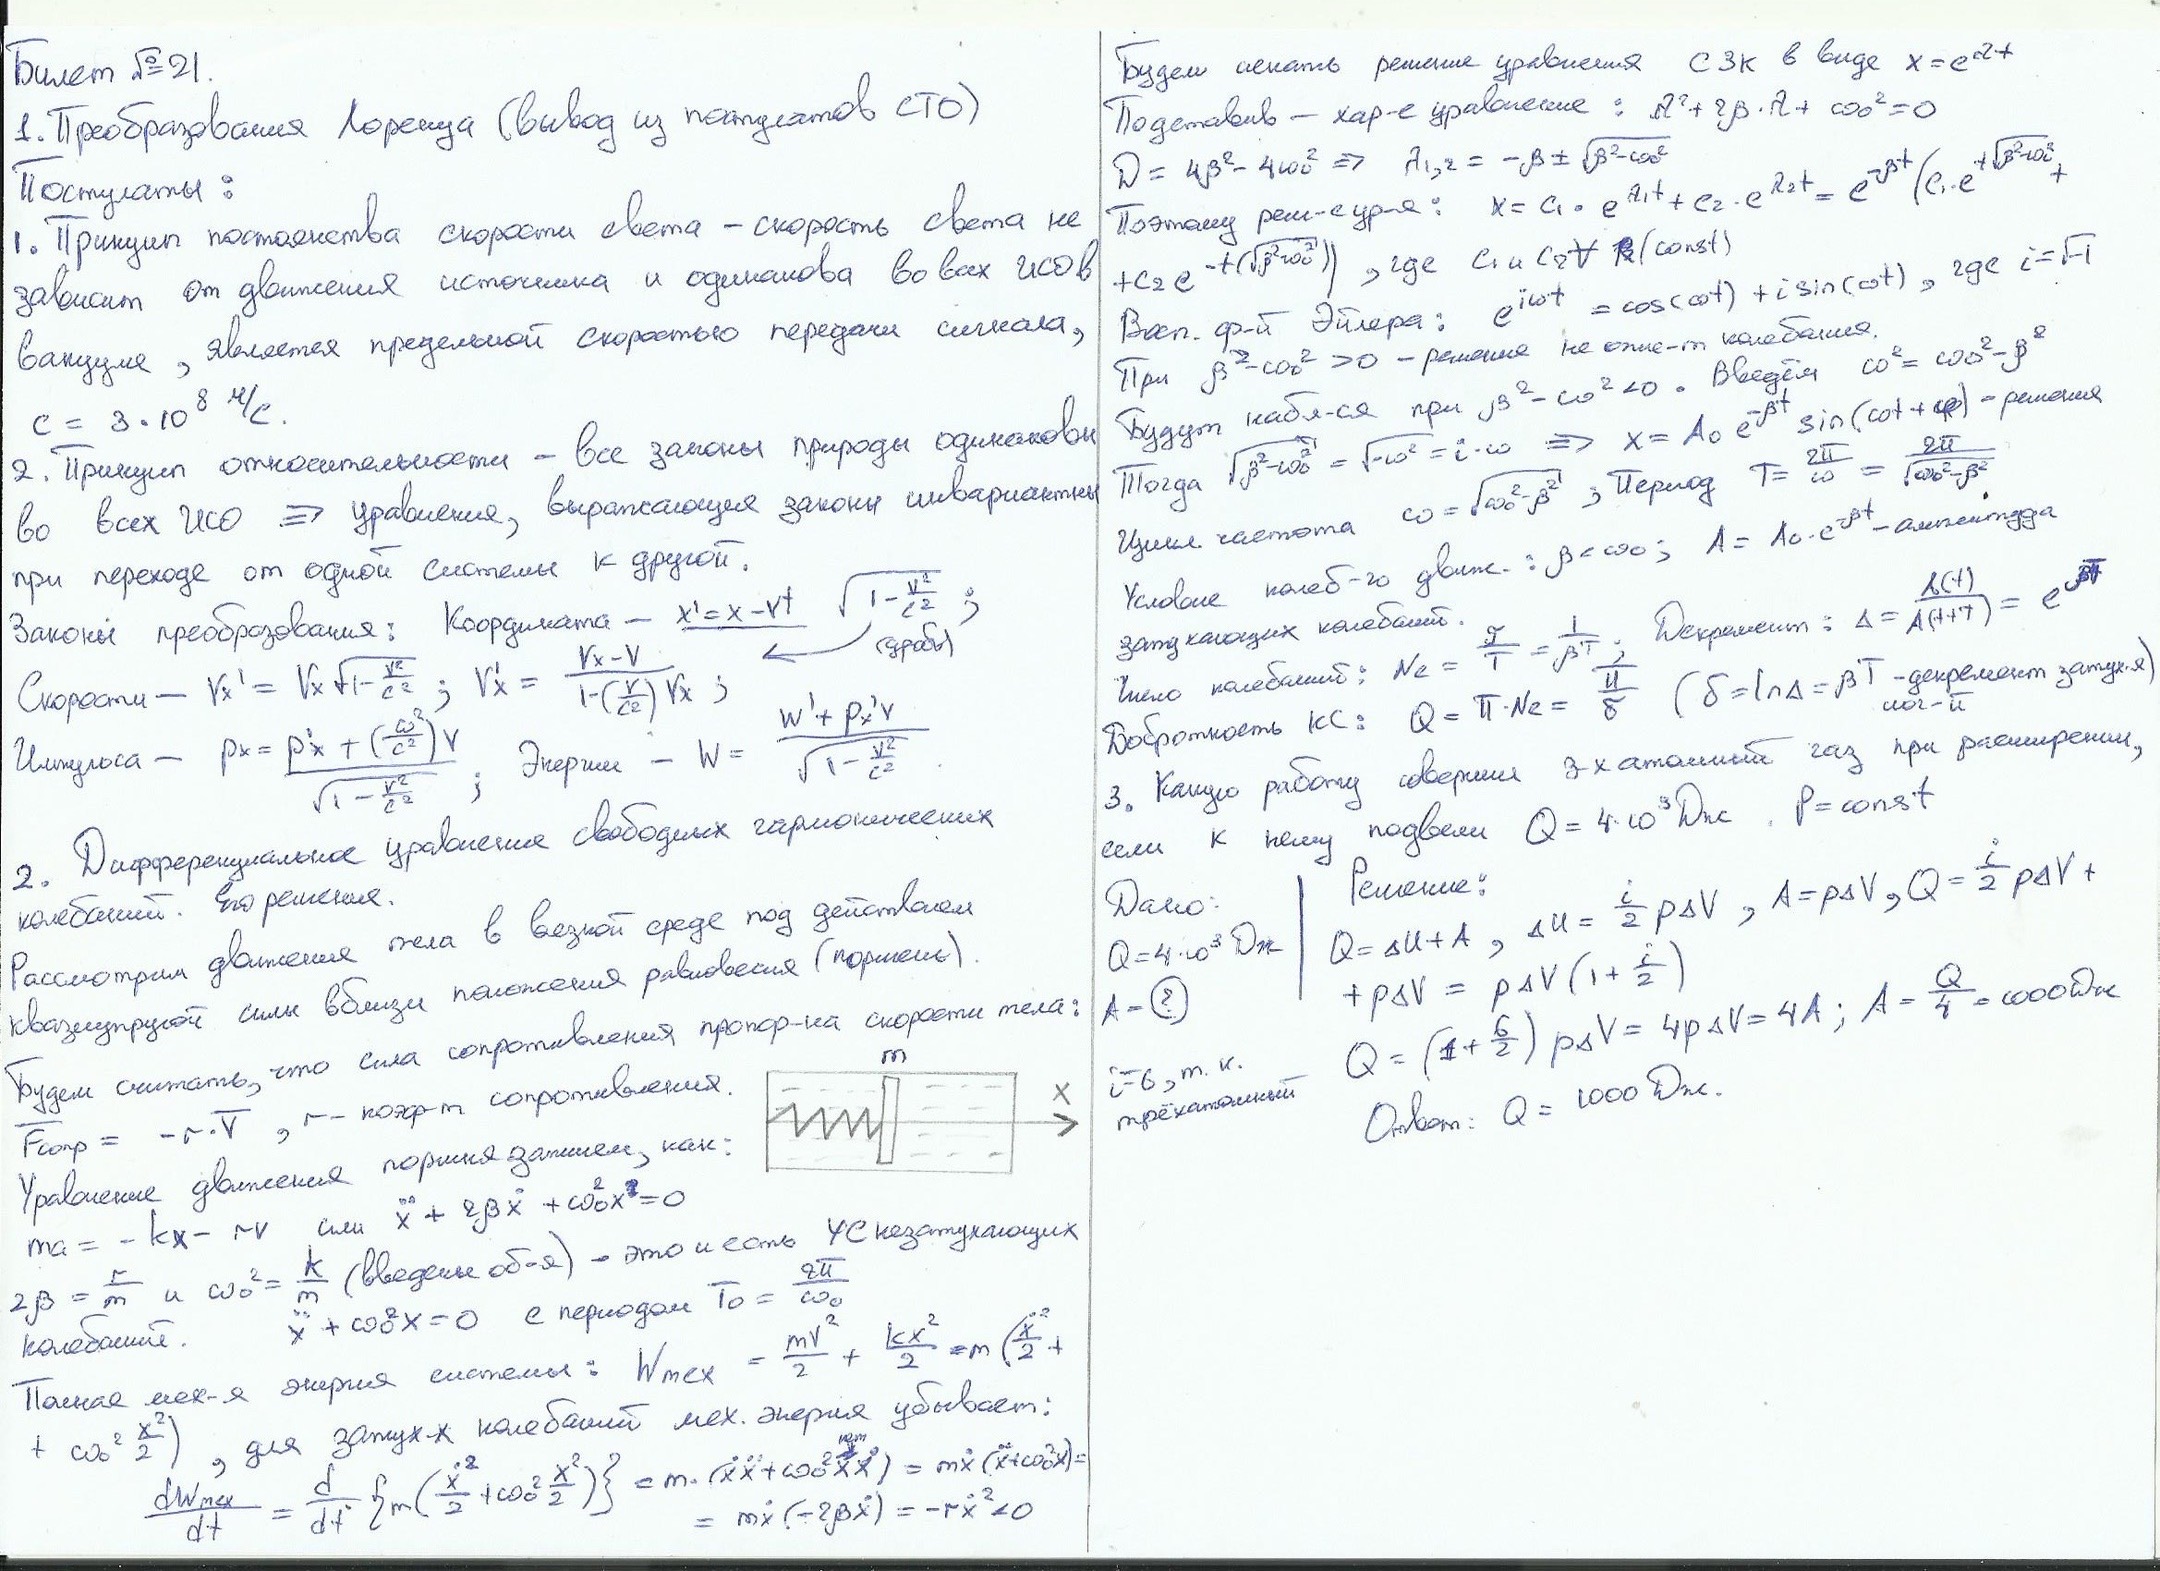 Билет №21.
1. Преобразования Лоренца (вывод из постулатов СТО)
Постулаты:
1. Принцип постоянства скорости света – скорость света не
зависит от движения источника и одинакова во всех ИСО в
вакууме, является предельной скоростью передачи сигнала,
c = 3·10⁸ м/с.
2. Принцип относительности – все законы природы одинаковы
во всех ИСО => уравнения, выражающие законы инвариантны
при переходе от одной системы к другой.
Законы преобразования: Координата – x' = x-Vt √(1-V²/c²);
(дробь)
Скорости – Vx' = Vx√(1-V²/c²); Vx' = (Vx-V)/(1-(V/c²)Vx);
Импульса – px = (p'x + (ω²/c²)V)/√(1-V²/c²); Энергии – W = (W'+px'V)/√(1-V²/c²).
2. Дифференциальное уравнение свободных гармонических
колебаний. Его решения.
Рассмотрим движения тела в вязкой среде под действием
квазиупругой силы вблизи положения равновесия (поршень).
Будем считать, что сила сопротивления пропор-на скорости тела:
Fсопр = -r·V, r – коэф-т сопротивления.
m
x
Уравнение движения поршня запишем, как:
ma = -kx - rv или ẍ + 2βẋ + ω₀²x = 0
2β = r/m и ω₀² = k/m (введены об-я) – это и есть УС незатухающих
колебаний. ẍ + ω₀²x = 0 с периодом T₀ = 2π/ω₀
Полная мех-я энергия системы: Wмех = mV²/2 + kx²/2 = m(ẋ²/2 +
+ ω₀² x²/2), для затух-х колебаний мех. энергия убывает:
dWмех/dt = d/dt {m(ẋ²/2 + ω₀² x²/2)} = m·(ẋẍ + ω₀²xẋ) = mẋ(ẍ+ω₀²x) =
= mẋ(-2βẋ) = -rẋ² < 0
Будем искать решение уравнения СЗК в виде x = e^λt
Подставив – хар-е уравнение: λ² + 2β·λ + ω₀² = 0
D = 4β² - 4ω₀² => λ1,2 = -β ± √(β²-ω₀²)
Поэтому реш-е ур-я: x = C₁·e^λ₁t + C₂·e^λ₂t = e^-βt (C₁·e^t√(β²-ω₀²) +
+ C₂e^-t(√(β²-ω₀²))), где C₁ и C₂ ∀ (const)
Восп. ф-й Эйлера: e^iωt = cos(ωt) + i sin(ωt), где i = √-1
При β²-ω₀² > 0 – решение не опис-т колебания.
Будут набл-ся при β²-ω₀² < 0. Введём ω² = ω₀²-β²
Тогда √(β²-ω₀²) = √(-ω²) = i·ω => x = A₀e^-βt sin(ωt+φ) – решения
Цикл. частота ω = √(ω₀²-β²); Период T = 2π/ω = 2π/√(ω₀²-β²)
Условие колеб-го движ.: β < ω₀; A = A₀·e^-βt – амплитуда
затухающих колебаний.
Число колебаний: Ne = τ/T = 1/βT; Декремент: Δ = A(t)/A(t+T) = e^βT
Добротность КС: Q = π·Ne = π/δ (δ = lnΔ = βT – декремент затух-я)
лог-й
3. Какую работу совершил 3-х атомный газ при расширении,
если к нему подвели Q = 4·10³ Дж. P = const
Дано:
Q = 4·10³ Дж
A – ?
i=6, т.к.
трёхатомный
Решение:
Q = ΔU + A, ΔU = i/2 pΔV, A = pΔV, Q = i/2 pΔV +
+ pΔV = pΔV(1 + i/2)
Q = (1 + 6/2) pΔV = 4pΔV = 4A; A = Q/4 = 1000Дж
Ответ: Q = 1000 Дж.